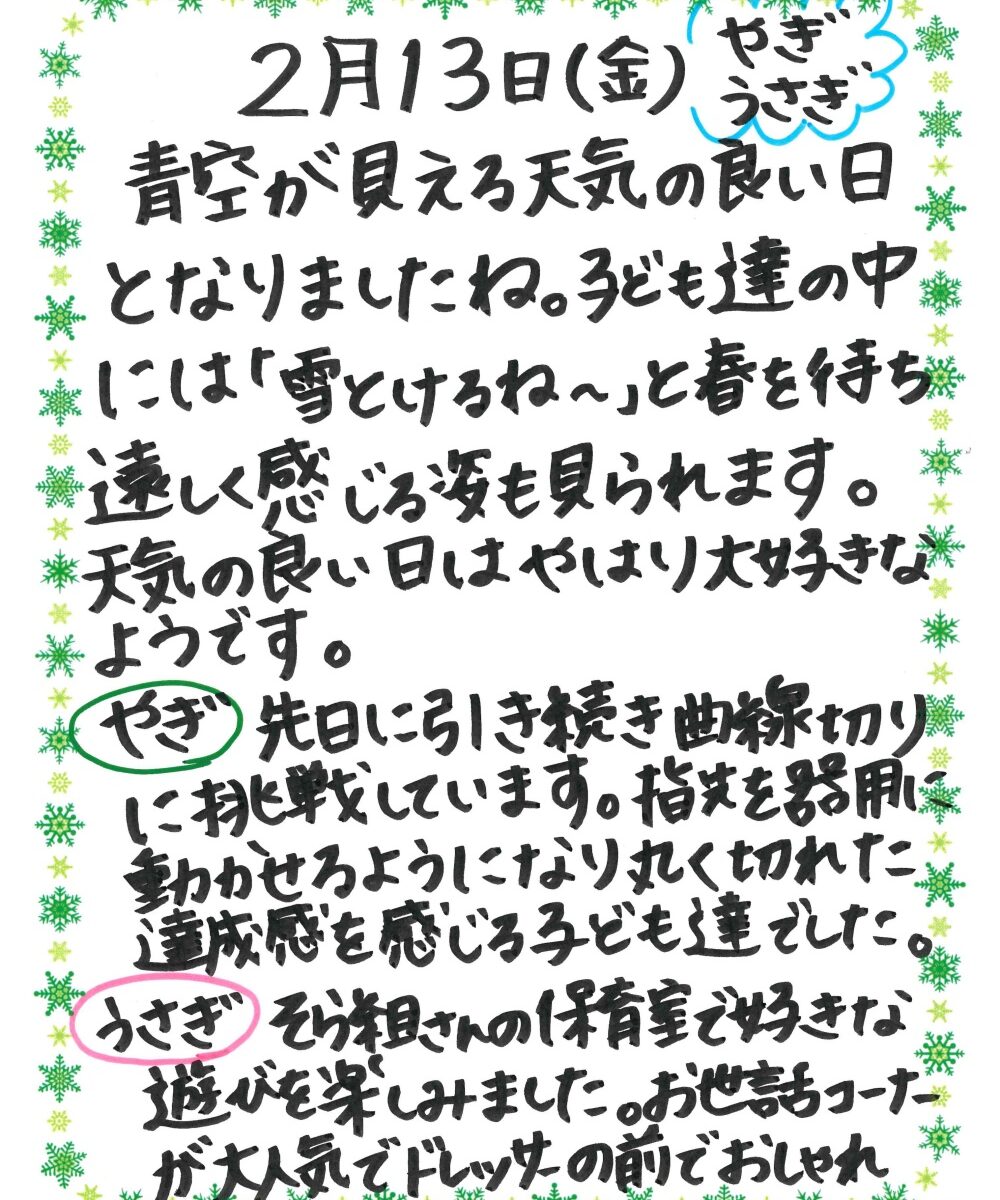 2月13日(金)
やぎ
うさぎ
青空が見える天気の良い日
となりましたね。子ども達の中
には「雪とけるね~」と春を待ち
遠しく感じる姿も見られます。
天気の良い日はやはり大好きな
ようです。
やぎ 先日に引き続き曲線切り
に挑戦しています。指丈を器用に
動かせるようになり丸く切れた
達成感を感じる子ども達でした。
うさぎ そら組さんの保育室で好きな
遊びを楽しみました。お世話コーナー
が大人気でドレッサーの前でおしゃれ